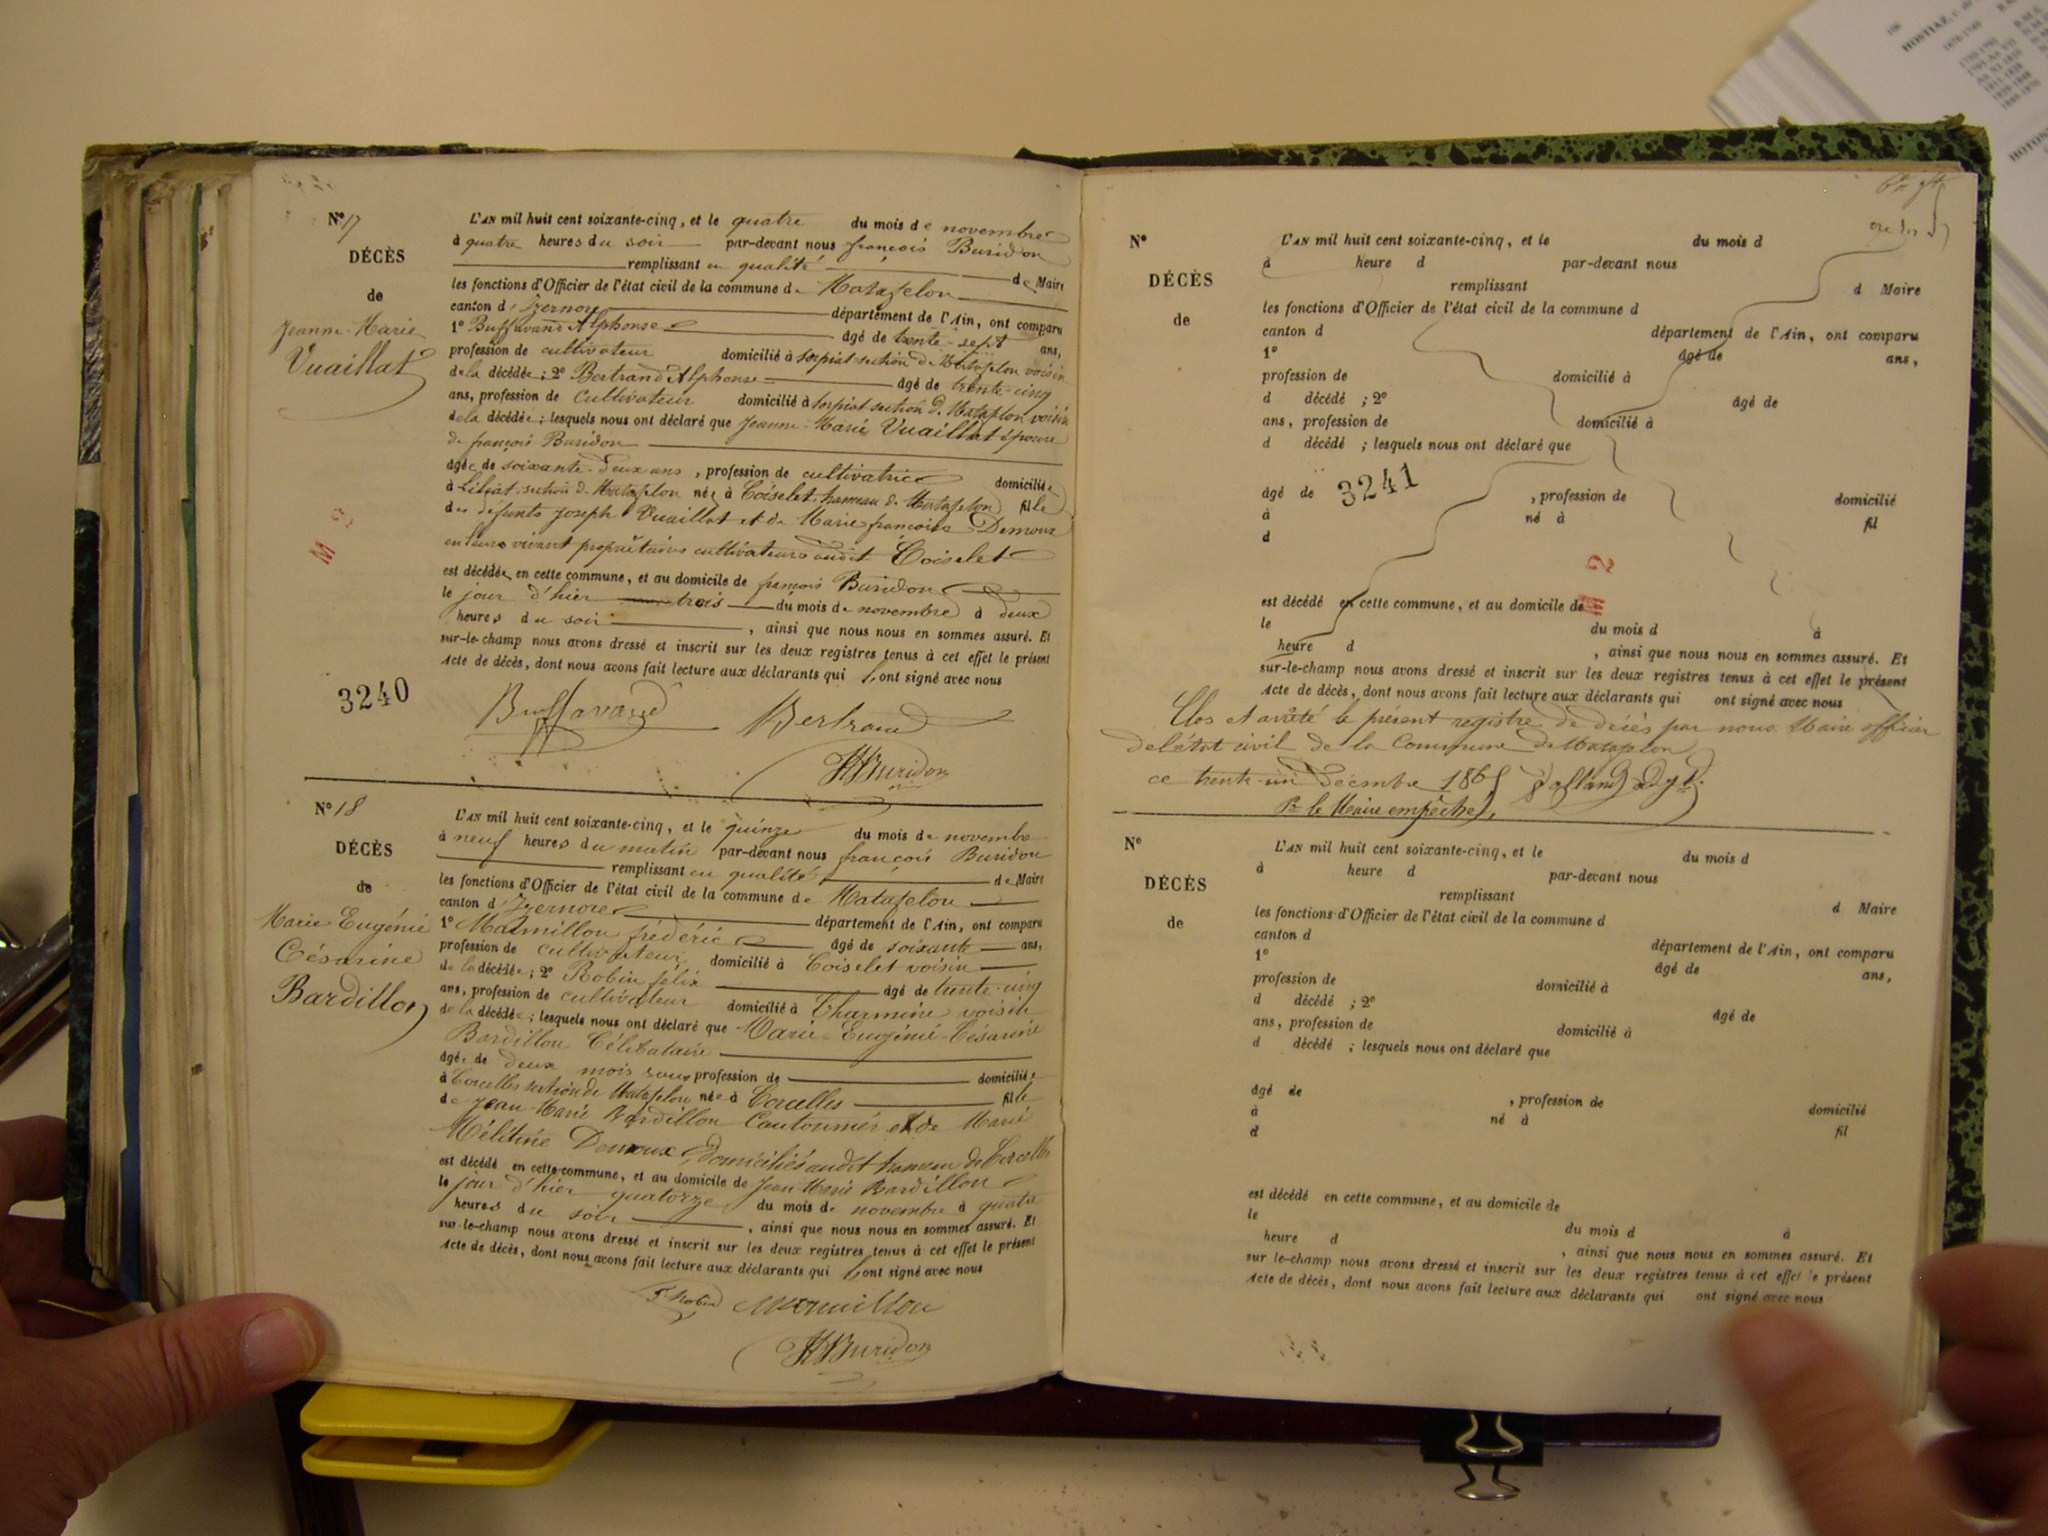 N° 17
DÉCÈS
de
Jeanne-Marie
Vuaillat
L'AN mil huit cent soixante-cinq, et le quatre du mois de novembre
à quatre heures du soir par-devant nous françois Buridon
remplissant en qualité de Maire
les fonctions d'Officier de l'état civil de la commune de Matafelon
canton d'Izernore département de l'Ain, ont comparu
1° Buffavand Alphonse âgé de trente-sept ans,
profession de cultivateur domicilié à Sorpiat section de Matafelon voisin
de la décédée; 2° Bertrand Alphonse âgé de trente-cinq
ans, profession de cultivateur domicilié à Sorpiat section de Matafelon voisin
de la décédée; lesquels nous ont déclaré que Jeanne-Marie Vuaillat épouse
de françois Buridon
âgée de soixante-deux ans, profession de cultivatrice domiciliée
à section de Matafelon née à Coiselet, hameau de Matafelon fille
des défunts Joseph Vuaillat et de Marie françoise Demoux
en leurs vivant propriétaires cultivateurs audit Coiselet
est décédée en cette commune, et au domicile de françois Buridon
le jour d'hier trois du mois de novembre à deux
heures du soir, ainsi que nous nous en sommes assuré. Et
sur-le-champ nous avons dressé et inscrit sur les deux registres tenus à cet effet le présent
Acte de décès, dont nous avons fait lecture aux déclarants qui ont signé avec nous
3240
Buffavand Bertrand
Buridon
N° 18
DÉCÈS
de
Marie Eugénie
Césarine
Bardillon
L'AN mil huit cent soixante-cinq, et le quinze du mois de novembre
à neuf heures du matin par-devant nous françois Buridon
remplissant en qualité de Maire
les fonctions d'Officier de l'état civil de la commune de Matafelon
canton d'Izernore département de l'Ain, ont comparu
1° Marmillon frédéric âgé de soixante ans,
profession de cultivateur domicilié à Coiselet voisin
de la décédée; 2° Robin félix âgé de trente-cinq
ans, profession de cultivateur domicilié à Tharmine voisin
de la décédée; lesquels nous ont déclaré que Marie-Eugénie-Césarine
Bardillon Célibataire
âgée de deux mois sans profession de domiciliée
à Corcelles section de Matafelon née à Corcelles fille
de Jean-Marie Bardillon Cantonnier et de Marie
Mélitine Demoux domiciliés audit hameau de Corcelles
est décédé en cette commune, et au domicile de Jean Marie Bardillon
le jour d'hier quatorze du mois de novembre à quatre
heures du soir, ainsi que nous nous en sommes assuré. Et
sur-le-champ nous avons dressé et inscrit sur les deux registres tenus à cet effet le présent
Acte de décès, dont nous avons fait lecture aux déclarants qui ont signé avec nous
F Robin Marmillon
Buridon
N°
DÉCÈS
de
L'AN mil huit cent soixante-cinq, et le du mois d
à heure d par-devant nous
remplissant d Maire
les fonctions d'Officier de l'état civil de la commune d
canton d département de l'Ain, ont comparu
1° âgé de ans,
profession de domicilié à
d décédé ; 2° âgé de
ans, profession de domicilié à
d décédé ; lesquels nous ont déclaré que
âgé de 3241 , profession de domicilié
à né à fil
d
est décédé en cette commune, et au domicile de
le du mois d à
heure d , ainsi que nous nous en sommes assuré. Et
sur-le-champ nous avons dressé et inscrit sur les deux registres tenus à cet effet le présent
Acte de décès, dont nous avons fait lecture aux déclarants qui ont signé avec nous
Clos et arrêté le présent registre de décès par nous Maire officier
de l'état civil de la Commune de Matafelon
ce trente-un Décembre 1865
Pr le Maire empêché,
N°
DÉCÈS
de
L'AN mil huit cent soixante-cinq, et le du mois d
à heure d par-devant nous
remplissant d Maire
les fonctions d'Officier de l'état civil de la commune d
canton d département de l'Ain, ont comparu
1° âgé de ans,
profession de domicilié à
d décédé ; 2° âgé de
ans, profession de domicilié à
d décédé ; lesquels nous ont déclaré que
âgé de , profession de domicilié
à né à fil
d
est décédé en cette commune, et au domicile de
le du mois d à
heure d , ainsi que nous nous en sommes assuré. Et
sur le-champ nous avons dressé et inscrit sur les deux registres tenus à cet effet le présent
Acte de décès, dont nous avons fait lecture aux déclarants qui ont signé avec nous